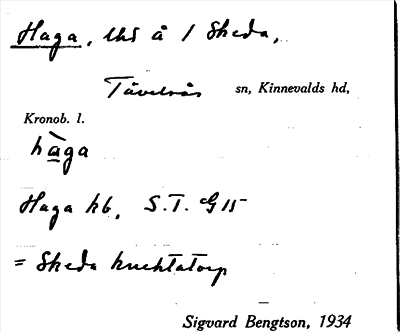 Haga, lhs å 1 Sheda,
Tävelsås sn, Kinnevalds hd,
Kronob. l.
hàga
Haga kb, S.T. G 15
= Sheda knektatorp
Sigvard Bengtson, 1934